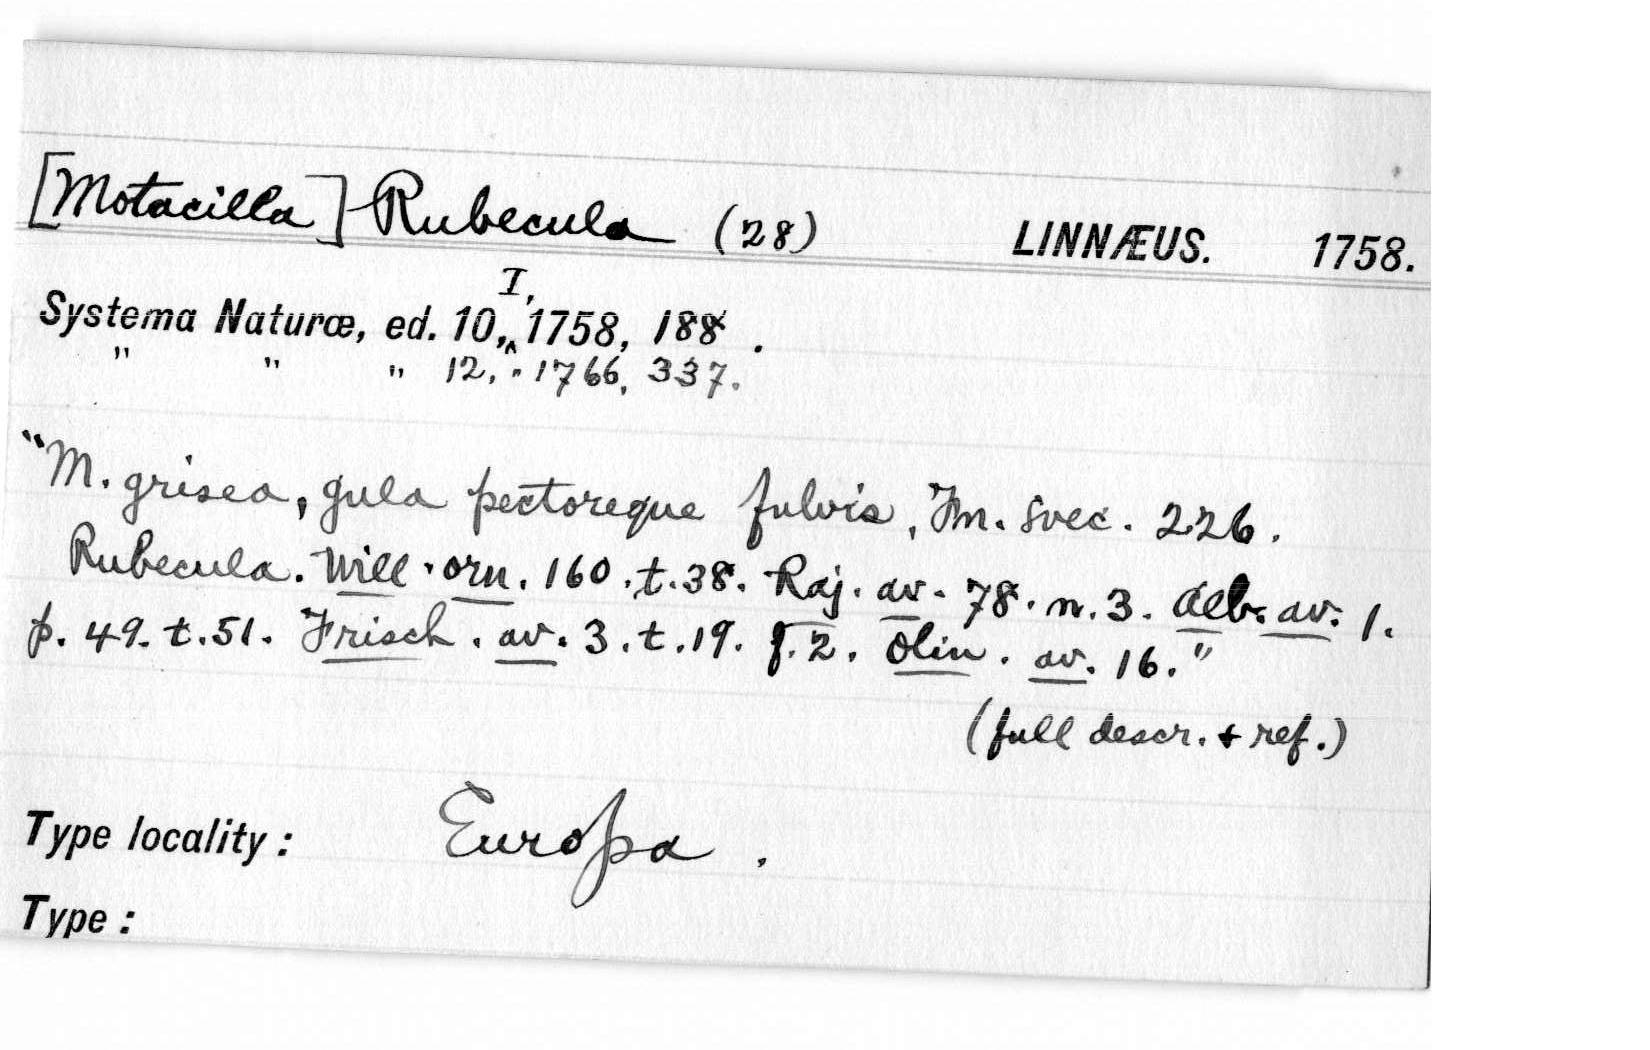 [Motacilla] Rubecula (28) LINNÆUS. 1758.
I,
Systema Naturæ, ed. 10,^ 1758, 188.
" " " 12, " 1766, 337.
"M. grisea, gula pectoreque fulvis, Fn. Svec. 226.
Rubecula. Will. orn. 160. t. 38. Raj. av. 78. n. 3. Alb. av. 1.
p. 49. t. 51. Frisch. av. 3. t. 19. f. 2. Olin. av. 16."
(full descr. + ref.)
Type locality: Europa.
Type: